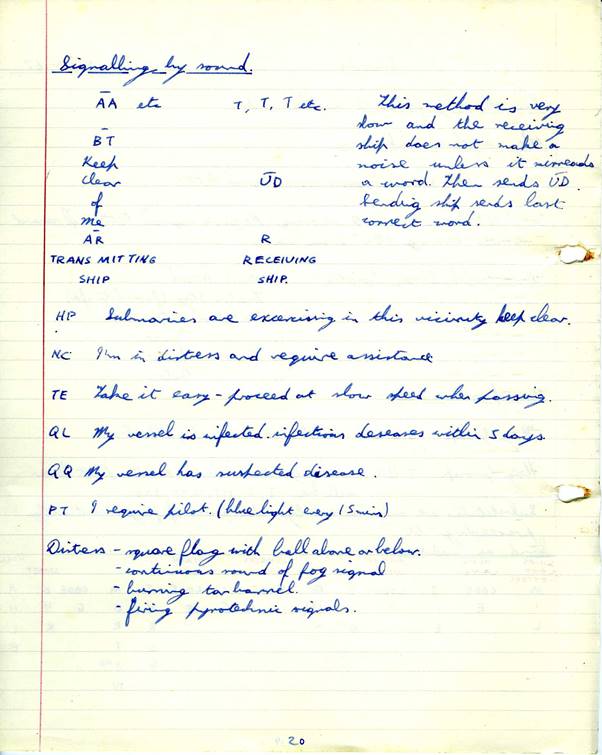 Signalling by sound.
A̅A̅ etc T, T, T etc. This method is very
slow and the receiving
B̅T̅ ship does not make a
Keep noise unless it misreads
clear U̅D̅ a word. Then sends U̅D̅.
of Sending ship sends last
me correct word.
A̅R̅ R
TRANSMITTING RECEIVING
SHIP SHIP.
HP Submaries are excercising in this vicinity keep clear.
NC I'm in distress and require assistance
TE Take it easy - proceed at slow speed when passing.
QL My vessel is infected. infectious deseases within 5 days
QQ My vessel has suspected disease.
PT I require pilot. (blue light every 15 mins)
Distess - square flag with ball above or below.
- continuous sound of fog signal
- burning tar barrel.
- firing pyrotechnic signals.
20